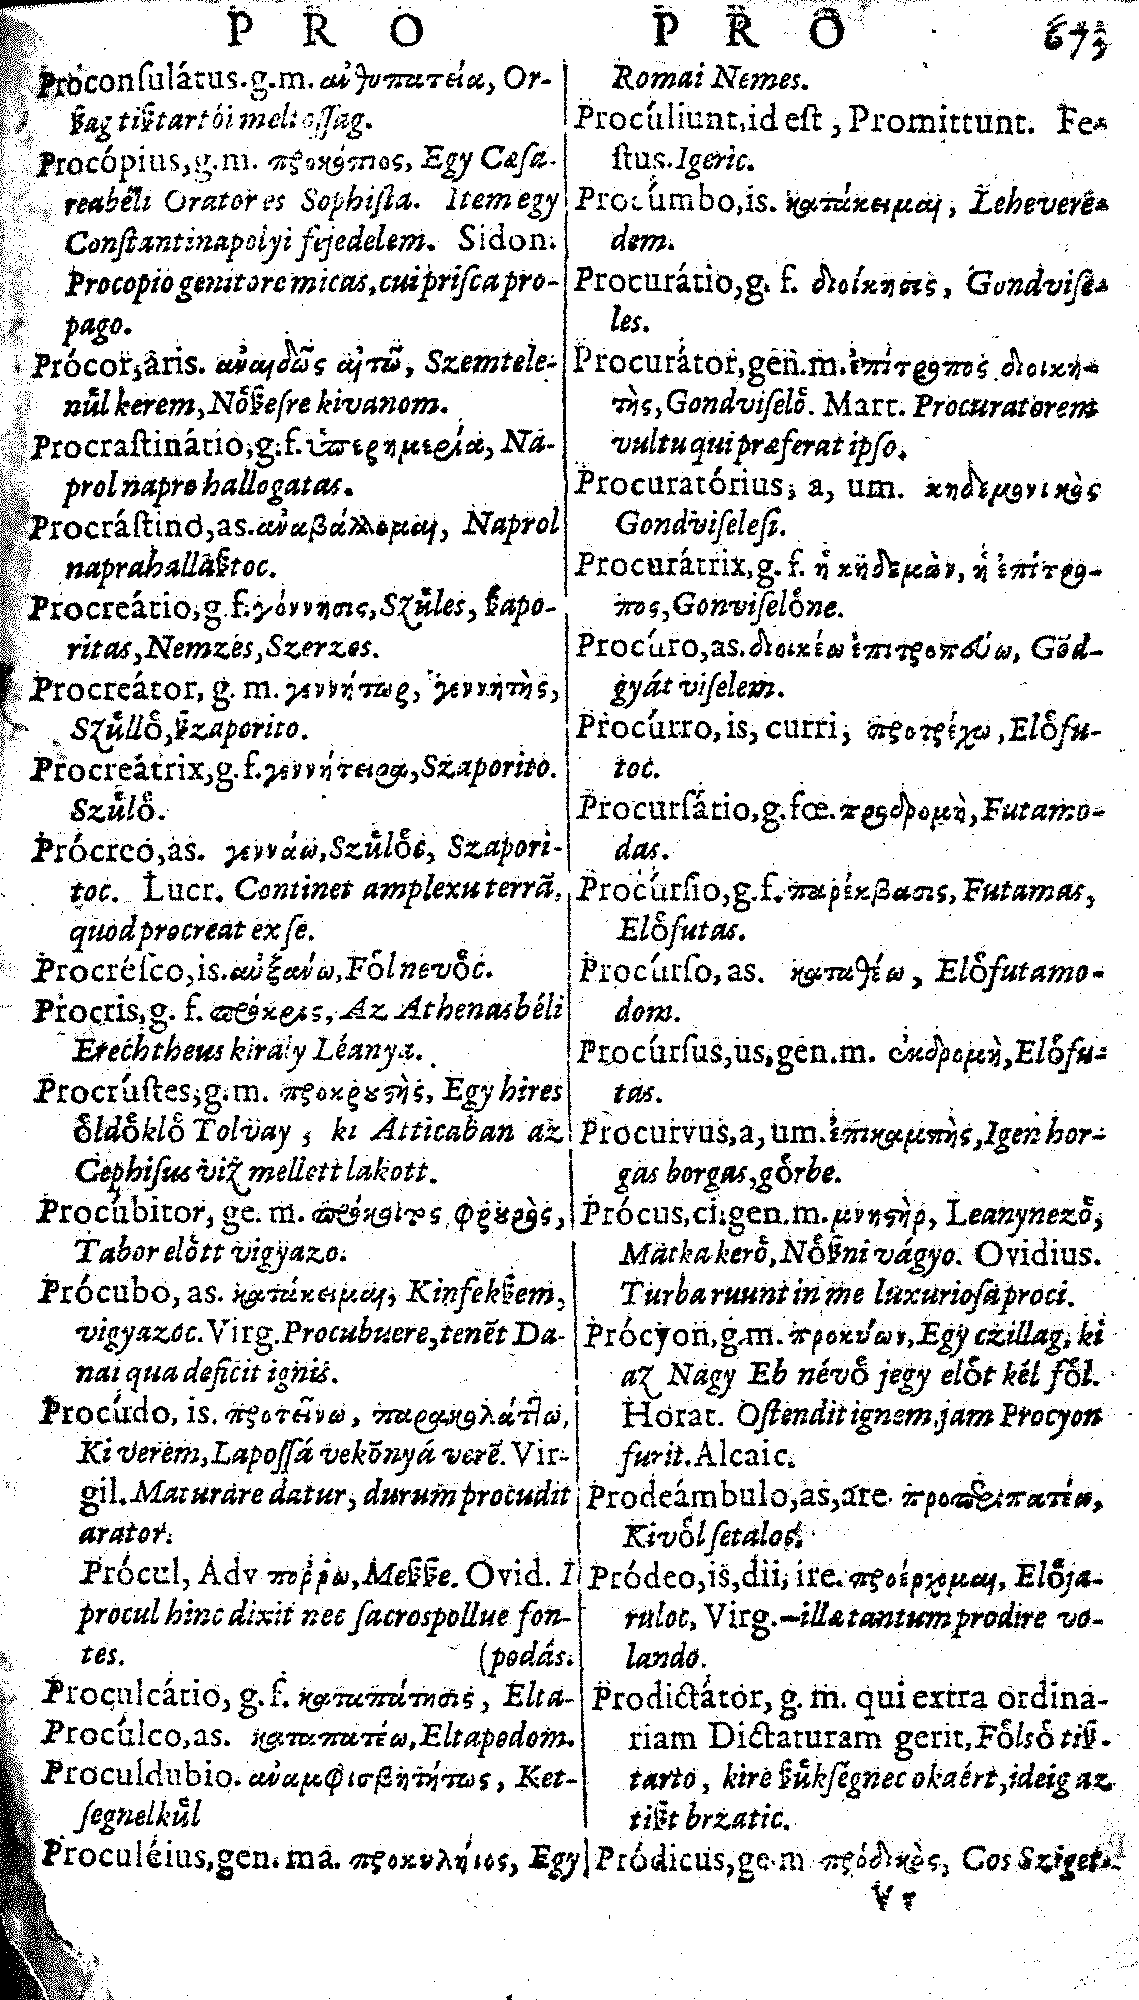 P R O
P R O
673
Proconſulátus.g.m. ανθυπατεία, Or-
ßag tißtartói meltoſſag.
Procópius,g.m. προκόπιος, Egy Cæſa-
reabéli Orator es Sophiſta. Item egy
Conſtantinapolyi fejedelem. Sidon.
Procopio genitore micas,cui priſca pro-
pago.
Prócor,áris. αναιδῶς αἰτῶ, Szemtele-
nűl kerem,Nőßeſre kivanom.
Procraſtinátio,g.f. ὑπερημερία, Na-
prol napra hallogatas.
Procráſtino,as.αναβάλλομαι, Naprol
naprahallaßtoc.
Procreátio,g.f.γέννησις,Szűles, ßapo-
ritas,Nemzes,Szerzes.
Procreátor, g. m. γεννήτωρ, γεννητὴς,
Szűllő,ßzaporito.
Procreátrix,g.f.γεννήτειρα,Szaporito.
Szűlő.
Prócreo,as. γεννάω,Szűlőc, Szapori-
toc. Lucr. Continet amplexu terrã,
quod procreat ex ſe.
Procréſco,is.αυξανω,Főlnevőc.
Procris,g. f. πρόκρις, Az Athenasbéli
Erechtheus kiraly Léanya.
Procrúſtes,g.m. προκρουστὴς, Egy hires
őldőklő Tolvay , ki Atticaban az
Cephiſus viz mellett lakott.
Procúbitor, ge. m. πρόκοιτος φρουρὸς,
Tabor előtt vigyazo.
Prócubo, as. κατάκειμαι, Kinfekßem,
vigyazoc.Virg.Procubuere,tenẽt Da-
nai qua deficit ignis.
Procúdo, is. προτείνω, παρακολάπτω,
Ki verem,Lapoſſá vekőnyá verẽ.Vir-
gil.Maturare datur, durum procudit
arator.
Prócul, Adv πορρίω,Meßße. Ovid. I
procul hinc dixit nec ſacros pollue fon-
tes.
(podás.
Proculcátio, g. f. καταπάτησις, Elta-
Procúlco,as. καταπατέω,Eltapodom.
Proculdubio. αναμφισβητήτως, Ket-
ſegnelkűl
Proculéius,gen. ma. προκυλήιος, Egy
Romai Nemes.
Procúliunt,id eſt , Promittunt. Fe-
ſtus.Igeric.
Procúmbo,is. κατάκειμαι, Leheverė-
dem.
Procurátio,g. f. διοίκησις, Gondviſe-
les.
Procurátor,gen.m.ἐπίτροπος διοικη-
τὴς,Gondviſelő. Mart. Procuratorem
vultu qui præferat ipſo.
Procuratórius, a, um. κηδεμονικὸς
Gondviſeleſi.
Procurátrix,g. f. ἡ κηδεμὰν, ἡ ἐπίτρο-
πος,Gonviſelőne.
Procúro,as.διοικέω ἐπιτροπεύω, Gőd-
gyát viſelem.
Procúrro,is, curri, προτρέχω ,Előfu-
toc.
Procurſátio,g.fœ. προδρομὴ,Futamo-
das.
Procúrſio,g.f.παρέκβασις,Futamas,
Előfutas.
Procúrſo,as. καταθέω , Előfutamo-
dom.
Procúrſus,us,gen.m. ἐκδρομὴ,Előfu-
tas.
Procurvus,a, um.ἐπικαμπὴς,Igen hor-
gas borgas,gőrbe.
Prócus,ci.gen.m.μνηστὴρ, Leanynező,
Matka kerő,Nőßni vágyo. Ovidius.
Turba ruunt in me luxurioſa proci.
Prócyon,g.m. προκύων,Egy czillag, ki
az Nagy Eb névő jegy előt kél fől.
Horat. Oſtendit ignem,jam Procyon
furit.Alcaic.
Prodeámbulo,as,are. προπεριπατέω,
Kivől ſetaloc.
Pródeo,is,dii, ire. προέρχομαι, Előja-
ruloc, Virg.—illa tantum prodire vo-
lando.
Prodictátor, g. m. qui extra ordina-
riam Dictaturam gerit,Főlső tiß-
tarto, kire ßűkſegnec okaért,ideig az
tißt brzatic.
Pródicus,ge.m πρόδικος, Cos Sziget-
V v